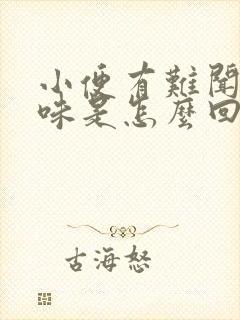 小便有難聞
味是怎麼回
古海怒